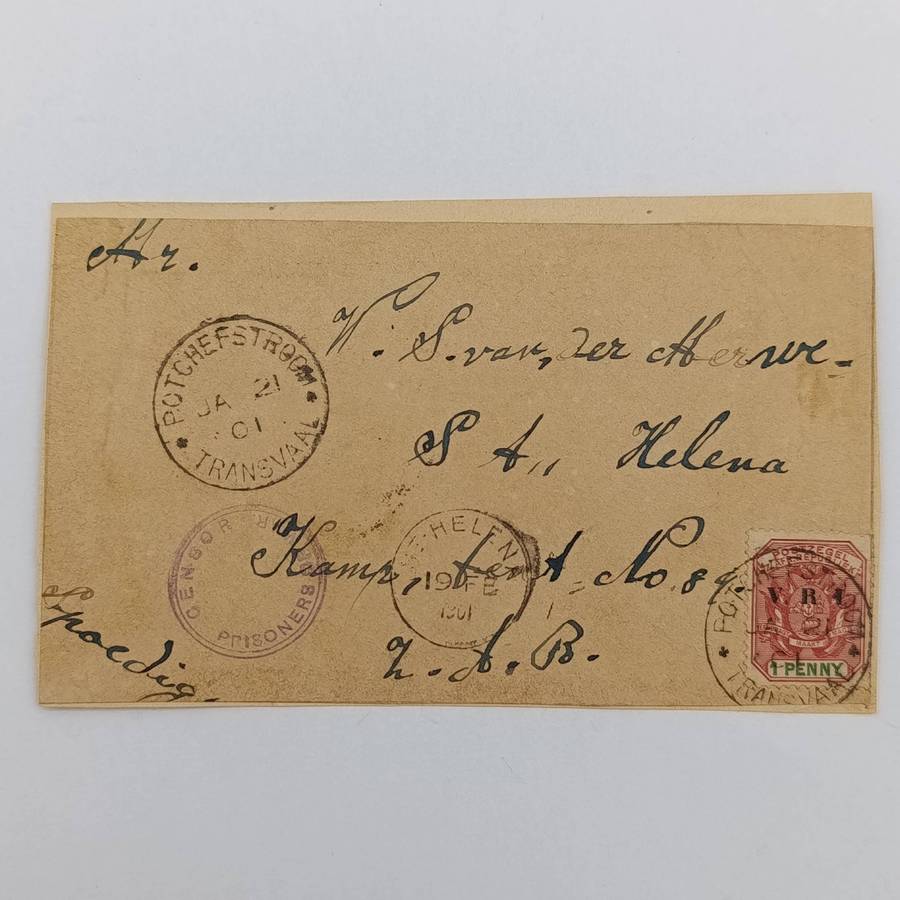 Mr.
W. S. van der Merwe -
St,, Helena
Kamp, tent No. 89
Z. A. B.
Spoedig
POTCHEFSTROOM
JA 21
01
TRANSVAAL
CENSOR
PRISONERS
ST. HELENA
19 FE
1901
POSTZEGEL
V R I
1 PENNY
POTCHEFSTROOM
JA 21
01
TRANSVAAL